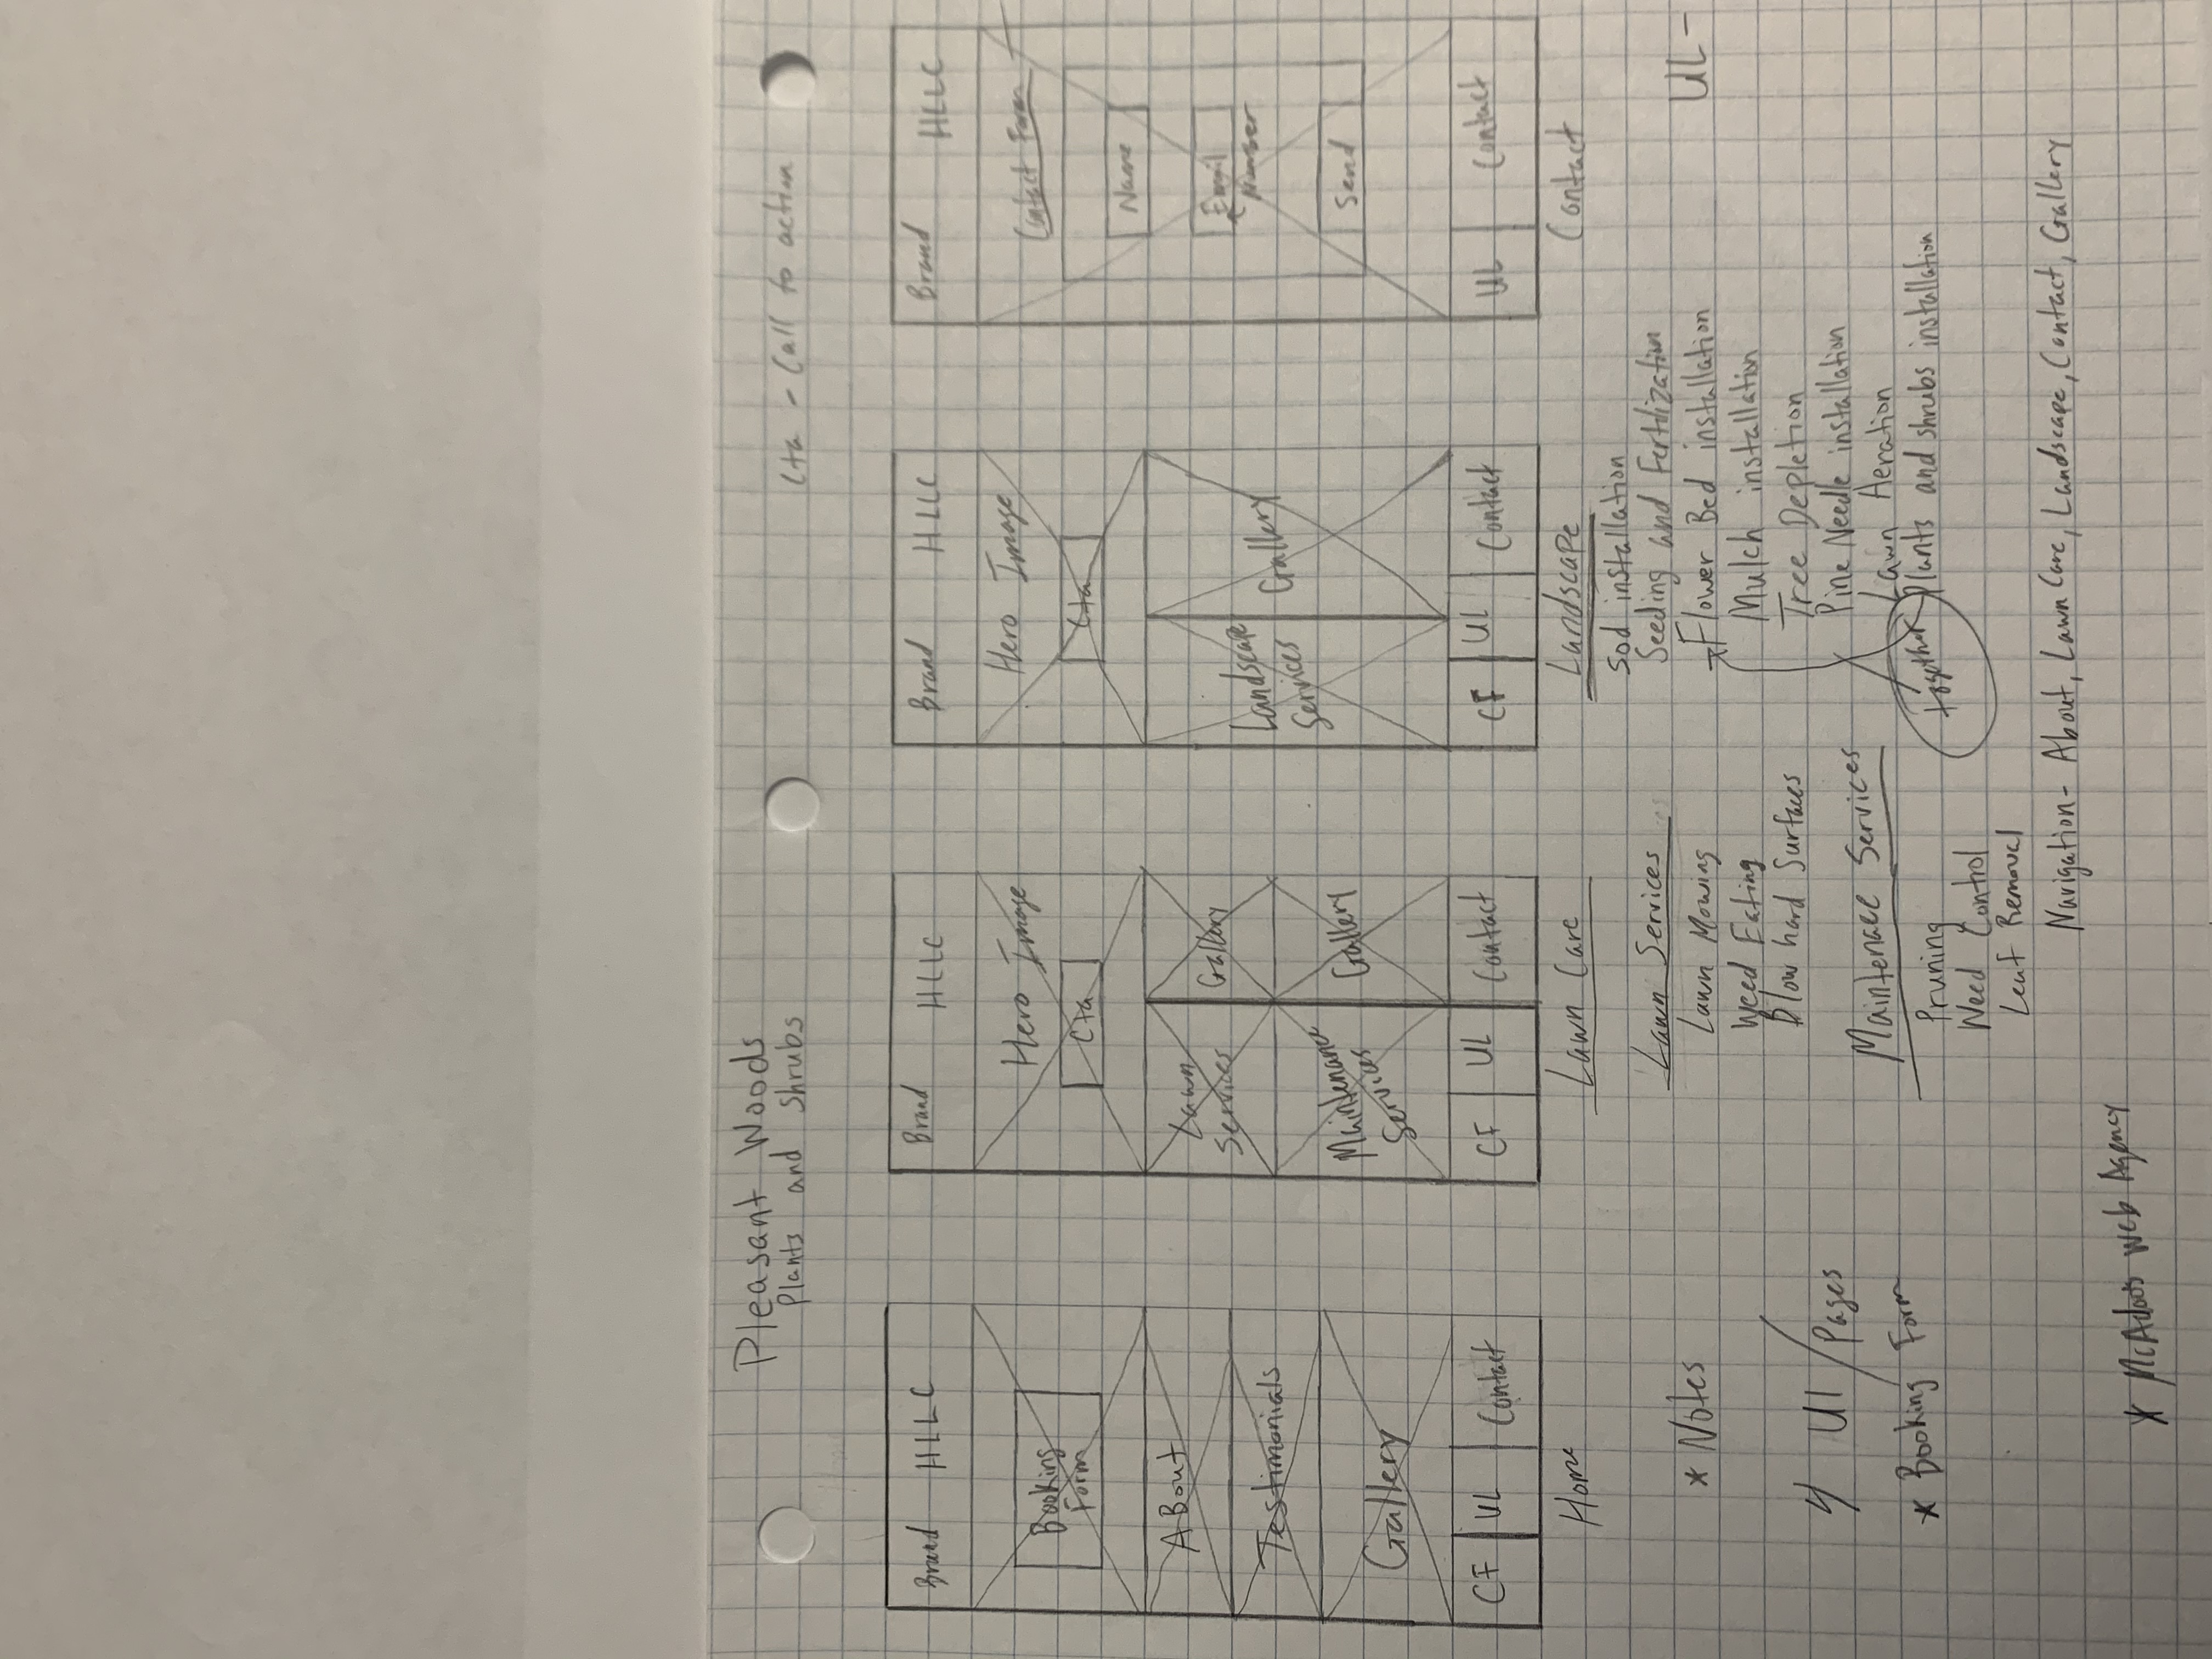 Pleasant Woods
Plants and Shrubs
Cta - Call to action
Brand HLLC
Booking
Form
ABout
Testimonials
Gallery
CF UL Contact
Home
Brand HLLC
Hero Image
Cta
Lawn
Services
Gallery
Maintenance
Services
Gallery
CF UL Contact
Lawn Care
Brand HLLC
Hero Image
Cta
Landscape
Services
Gallery
CF UL Contact
Landscape
Brand HLLC
Contact Form
Name
Email
Number
Send
UL Contact
Contact
* Notes
4 UI / Pages
* Booking Form
* McAdoos Web Agency
Lawn Services
Lawn Mowing
Weed Eating
Blow hard Surfaces
Maintenace Services
Pruning
Weed Control
Leaf Removal
Sod installation
Seeding and Fertilization
Flower Bed installation
Mulch installation
Tree Depletion
Pine Needle installation
Lawn Aeration
together
Plants and shrubs installation
UL-
Navigation- About, Lawn Care, Landscape, Contact, Gallery